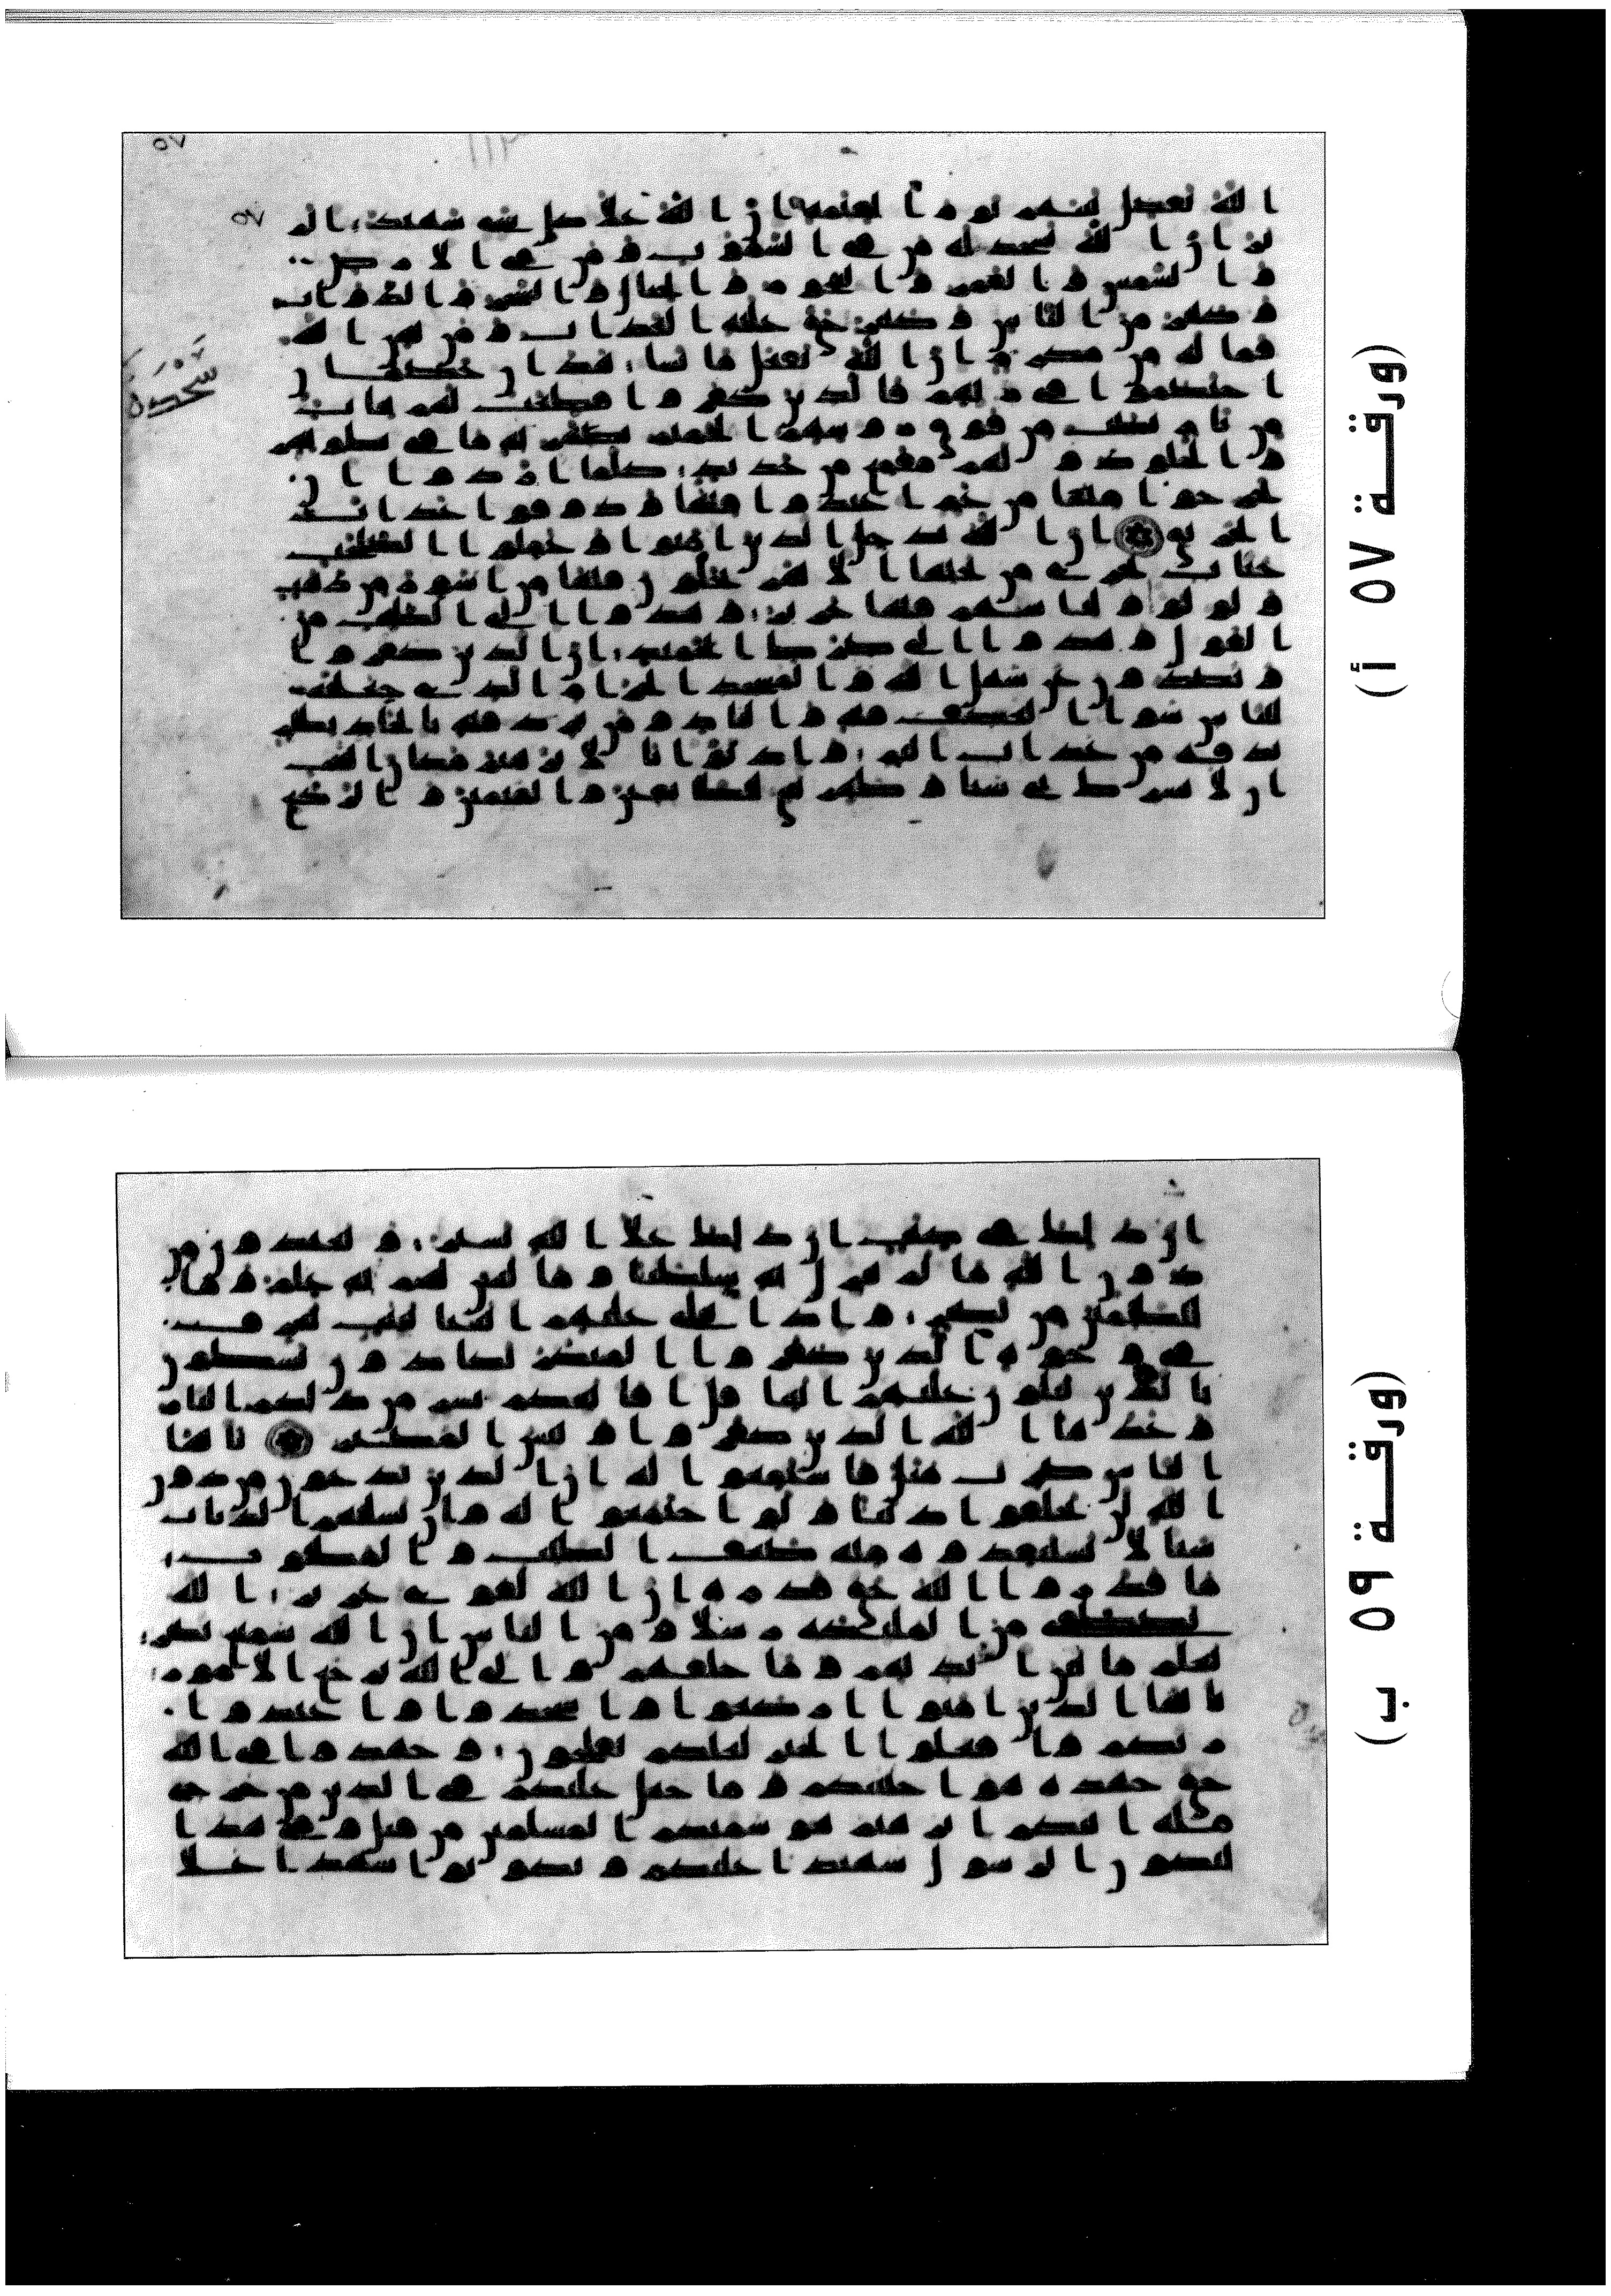 ٥٧
٥٧
الله يفصل بينهم يوم القيمة ان الله على كل شى شهيد الم
تر ان الله يسجد له من فى السموت ومن فى الارض
والشمس والقمر والنجوم والجبال والشجر والدواب
وكثير من الناس وكثير حق عليه العذاب ومن يهن الله
فما له من مكرم ان الله يفعل ما يشا هذان خصمان
سجدة
اختصموا فى ربهم فالذين كفروا قطعت لهم ثياب
من نار يصب من فوق روسهم الحميم يصهر به ما فى بطونهم
والجلود ولهم مقمع من حديد كلما ارادوا ان
يخرجوا منها من غم اعيدوا فيها وذوقوا عذاب
الحريق ان الله يدخل الذين امنوا وعملوا الصلحت
جنت تجرى من تحتها الانهر يحلون فيها من اسور من ذهب
ولولوا ولباسهم فيها حرير وهدوا الى الطيب من
القول وهدوا الى صرط الحميد ان الذين كفروا
ويصدون عن سبيل الله والمسجد الحرام الذى جعلنه
للناس سوا العكف فيه والباد ومن يرد فيه بالحاد بظلم
نذقه من عذاب اليم واذ بوانا لابرهيم مكان البيت
ان لا تشرك بى شيا وطهر بيتى للطايفين والقيمين والركع
(ورقة ٥٧ أ)
ان ذلك فى كتب ان ذلك على الله يسير ويعبدون من
دون الله ما لم ينزل به سلطنا وما ليس لهم به علم وما
للظلمين من نصير واذا تتلى عليهم ايتنا بينت تعرف
فى وجوه الذين كفروا المنكر يكادون يسطون
بالذين يتلون عليهم ايتنا قل افانبيكم بشر من ذلكم النار
وعدها الله الذين كفروا وبيس المصير يايها
الناس ضرب مثل فاستمعوا له ان الذين تدعون من دون
الله لن يخلقوا ذبابا ولو اجتمعوا له وان يسلبهم الذباب
شيا لا يستنقذوه منه ضعف الطلب والمطلوب
ما قدروا الله حق قدره ان الله لقوى عزيز الله
يصطفى من المليكة رسلا ومن الناس ان الله سميع بصير
يعلم ما بين ايديهم وما خلفهم والى الله ترجع الامور
يايها الذين امنوا اركعوا واسجدوا واعبدوا
ربكم وافعلوا الخير لعلكم تفلحون وجهدوا فى الله
حق جهده هو اجتبيكم وما جعل عليكم فى الدين من حرج
ملة ابيكم ابرهيم هو سميكم المسلمين من قبل وفى هذا
ليكون الرسول شهيدا عليكم وتكونوا شهدا على
(ورقة ٥٩ ب)